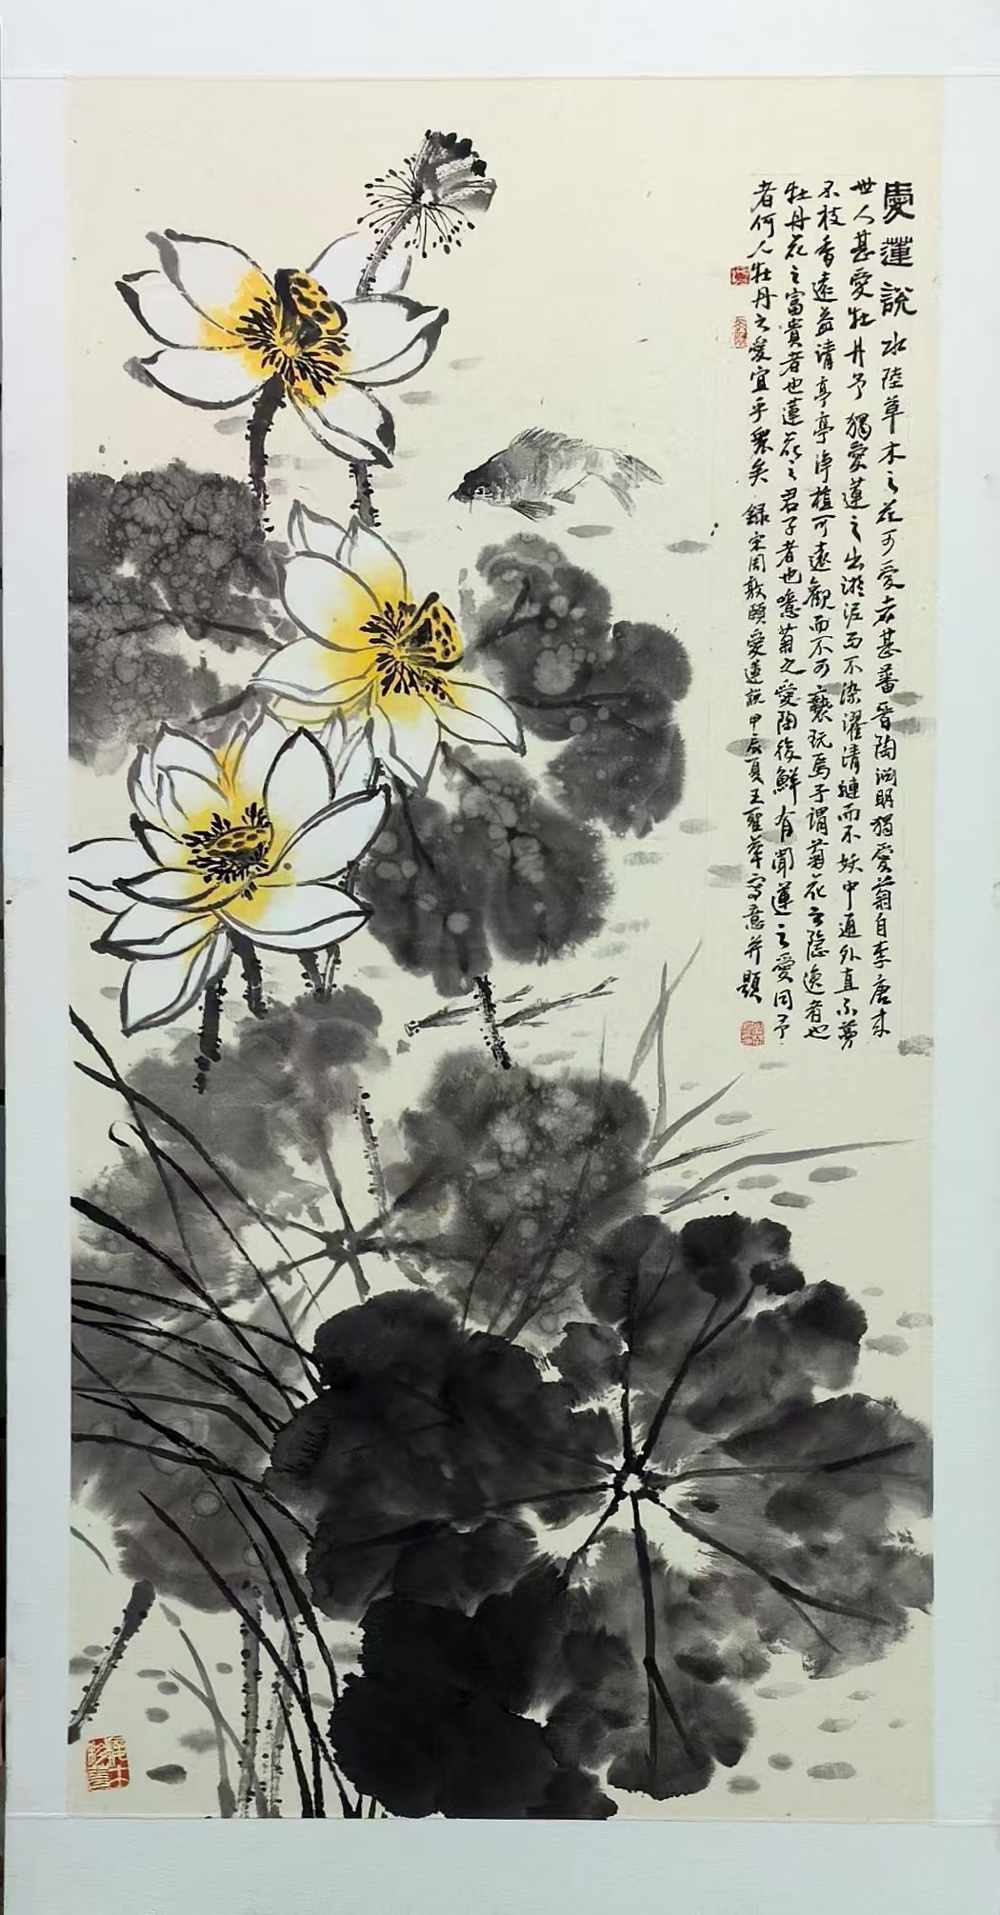 愛蓮說 水陸草木之花可愛者甚蕃晉陶淵明獨愛菊自李唐來
世人甚愛牡丹予獨愛蓮之出淤泥而不染濯清漣而不妖中通外直不蔓
不枝香遠益清亭亭淨植可遠觀而不可褻玩焉予謂菊花之隱逸者也
牡丹花之富貴者也蓮花之君子者也噫菊之愛陶後鮮有聞蓮之愛同予
者何人牡丹之愛宜乎眾矣 錄宋周敦頤愛蓮說甲辰夏王聖華寫意并題